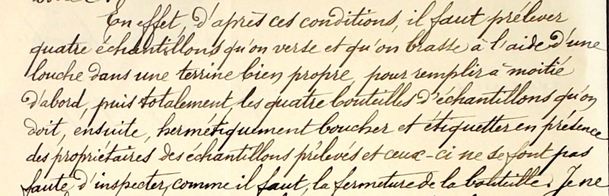 En effet, d'après ces conditions, il faut prélever
quatre échantillons qu'on verse et qu'on brasse à l'aide d'une
louche dans une terrine bien propre, pour remplir à moitié
d'abord, puis totalement, les quatre bouteilles d'échantillons qu'on
doit, ensuite, hermétiquement boucher et étiquetter en présence
des propriétaires des échantillons prélevés et ceux-ci ne se font pas
faute, d'inspecter, comme il faut, la fermeture de la bouteille. Je ne